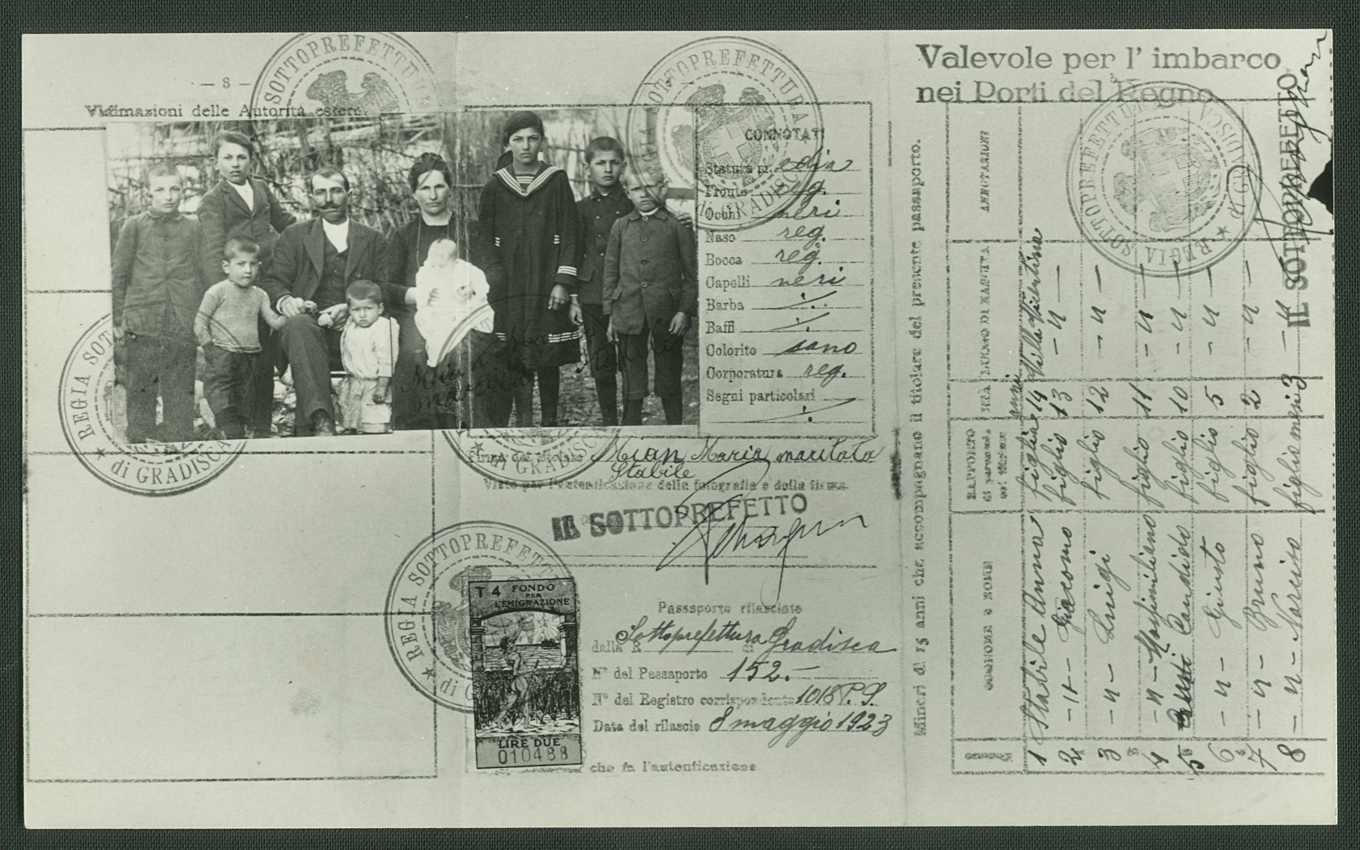 — 3 —
Vidimazioni delle Autorità estere
REGIA SOTTOPREFETTURA
di GRADISCA
CONNOTATI
Statura m. edia
Fronte reg.
Occhi neri
Naso reg.
Bocca reg.
Capelli neri
Barba
Baffi
Colorito sano
Corporatura reg.
Segni particolari
Mian Maria maritata
Stabile
Visto per l'autenticazione della fotografia e della firma.
IL SOTTOPREFETTO
T 4 FONDO
PER
L'EMIGRAZIONE
LIRE DUE
010488
Passaporto rilasciato
dalla R. Sottoprefettura di Gradisca
N° del Passaporto 152.-
N° del Registro corrispondente 1018 P. S.
Data del rilascio 8 maggio 1923
che fa l'autenticazione
Valevole per l' imbarco
nei Porti del Regno
REGIA SOTTOPREFETTURA
di GRADISCA
IL SOTTOPREFETTO
Minori di 15 anni che accompagnano il titolare del presente passaporto.
COGNOME e NOME RAPPORTO di parentela col titolare ETÀ LUOGO DI NASCITA ANNOTAZIONI
1 Stabile Anna figlia anni 14 Villa Vicentina
2 - " - Giacomo figlio 13 - " -
3 - " - Luigi figlio 12 - " -
4 - " - Massimiliano figlio 11 - " -
5 Candido figlio 10 - " -
6 - " - Giusto figlio 5 - " -
7 - " - Bruno figlio 2 - " -
8 - " - Narciso figlio mesi 3 - " -